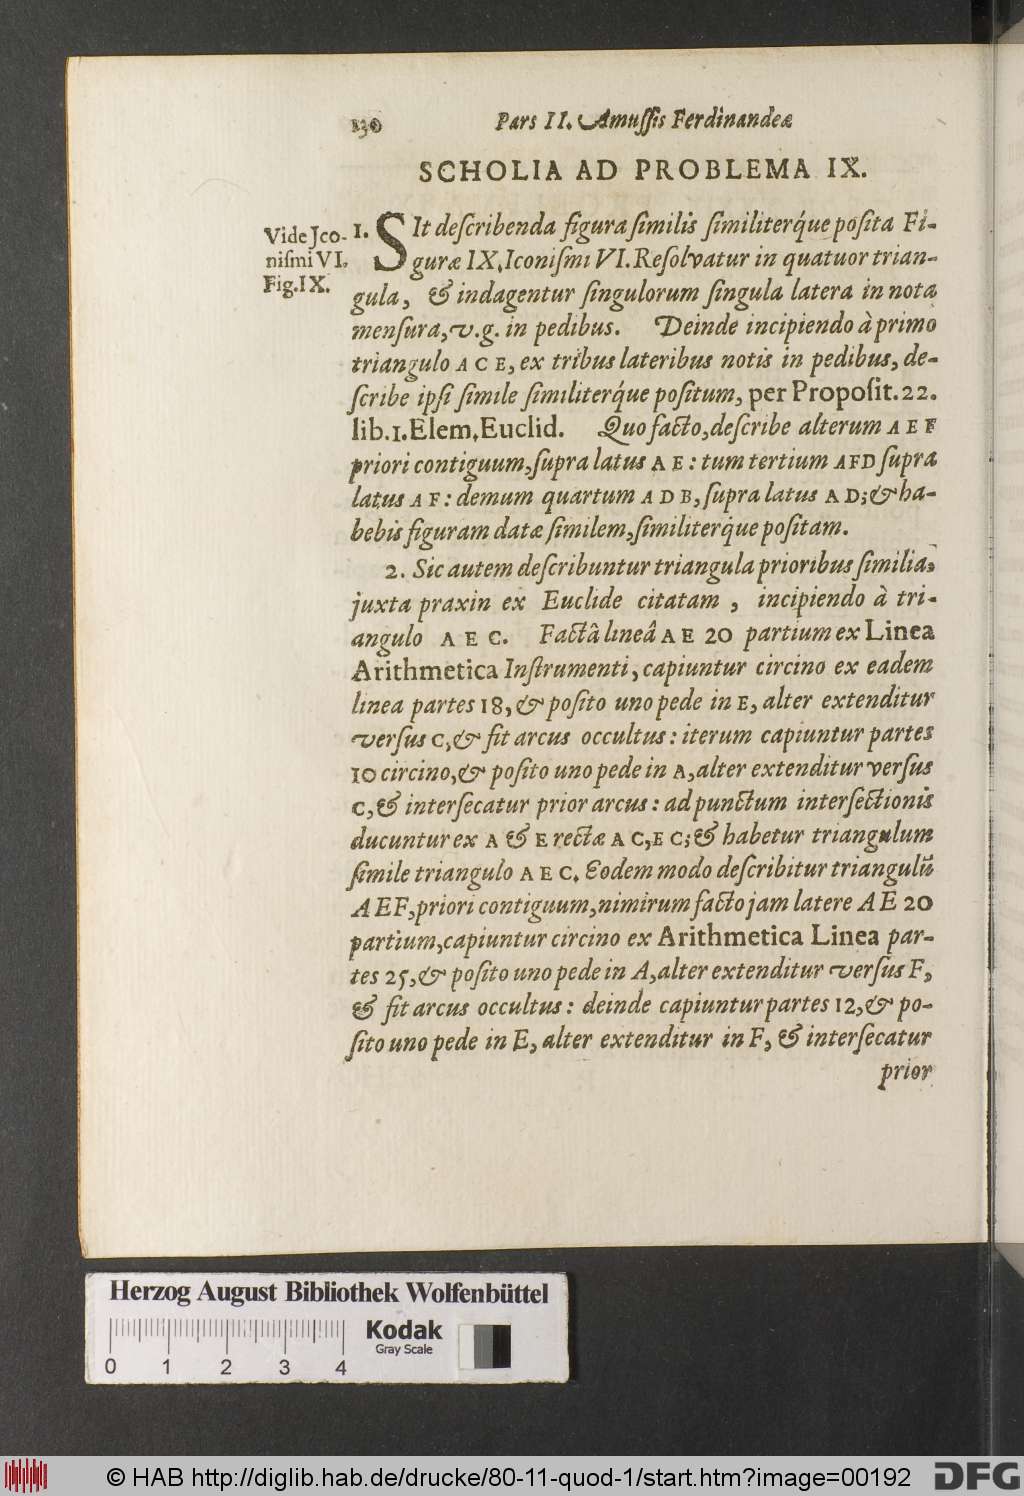 130 Pars II. Amuſſis Ferdinandeæ
SCHOLIA AD PROBLEMA IX.
Vide Jco-
niſmi VI.
Fig. IX.
1. SIt deſcribenda figura ſimilis ſimiliterq́ue poſita Fi-
guræ IX. Iconiſmi VI. Reſolvatur in quatuor trian-
gula, & indagentur ſingulorum ſingula latera in nota
menſura, v.g. in pedibus. Deinde incipiendo à primo
triangulo A C E, ex tribus lateribus notis in pedibus, de-
ſcribe ipſi ſimile ſimiliterq́ue poſitum, per Propoſit. 22.
lib. 1. Elem. Euclid. Quo facto, deſcribe alterum A E F
priori contiguum, ſupra latus A E: tum tertium AFD ſupra
latus A F: demum quartum A D B, ſupra latus A D; & ha-
bebis figuram datæ ſimilem, ſimiliterq́ue poſitam.
2. Sic autem deſcribuntur triangula prioribus ſimilia,
juxta praxin ex Euclide citatam, incipiendo à tri-
angulo A E C. Factâ lineâ A E 20 partium ex Linea
Arithmetica Inſtrumenti, capiuntur circino ex eadem
linea partes 18, & poſito uno pede in E, alter extenditur
verſus C, & fit arcus occultus: iterum capiuntur partes
10 circino, & poſito uno pede in A, alter extenditur verſus
C, & interſecatur prior arcus: ad punctum interſectionis
ducuntur ex A & E rectæ A C, E C; & habetur triangulum
ſimile triangulo A E C. Eodem modo deſcribitur triangulū
A E F, priori contiguum, nimirum facto jam latere A E 20
partium, capiuntur circino ex Arithmetica Linea par-
tes 25, & poſito uno pede in A, alter extenditur verſus F,
& fit arcus occultus: deinde capiuntur partes 12, & po-
ſito uno pede in E, alter extenditur in F, & interſecatur
prior
Herzog August Bibliothek Wolfenbüttel
0 1 2 3 4
Kodak
Gray Scale
© HAB http://diglib.hab.de/drucke/80-11-quod-1/start.htm?image=00192
DFG